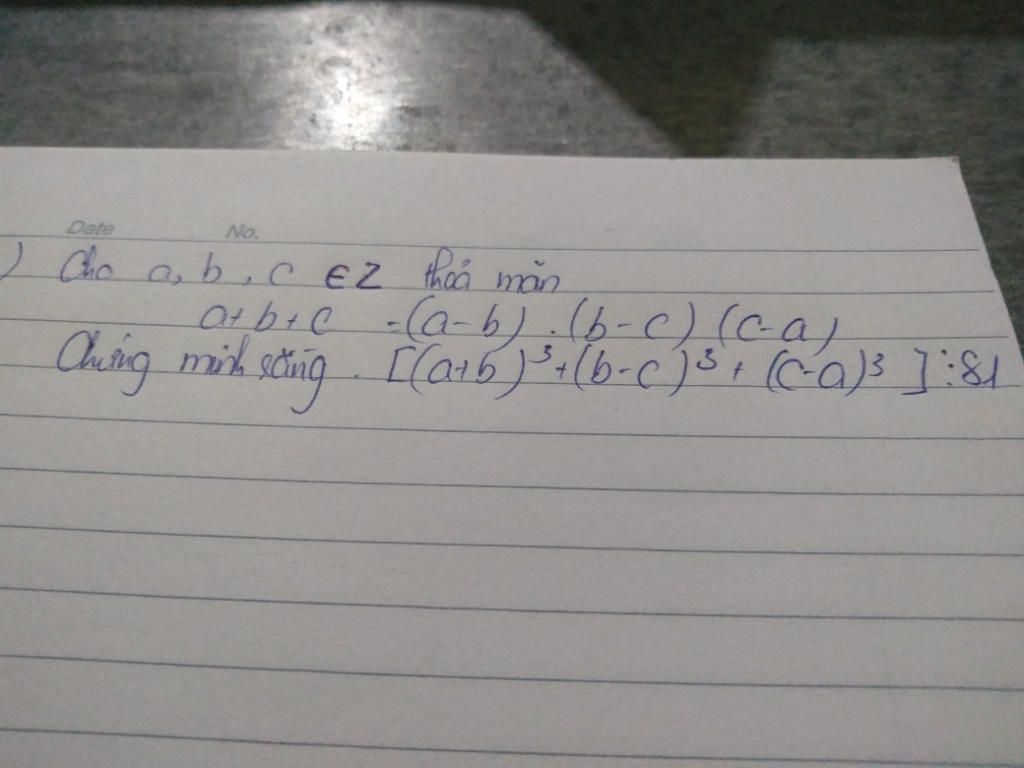 Date No.
) Cho a, b, c ∈ Z thoả mãn
a+b+c =(a-b).(b-c)(c-a)
Chứng minh rằng. [(a+b)³+(b-c)³+(c-a)³]⋮81